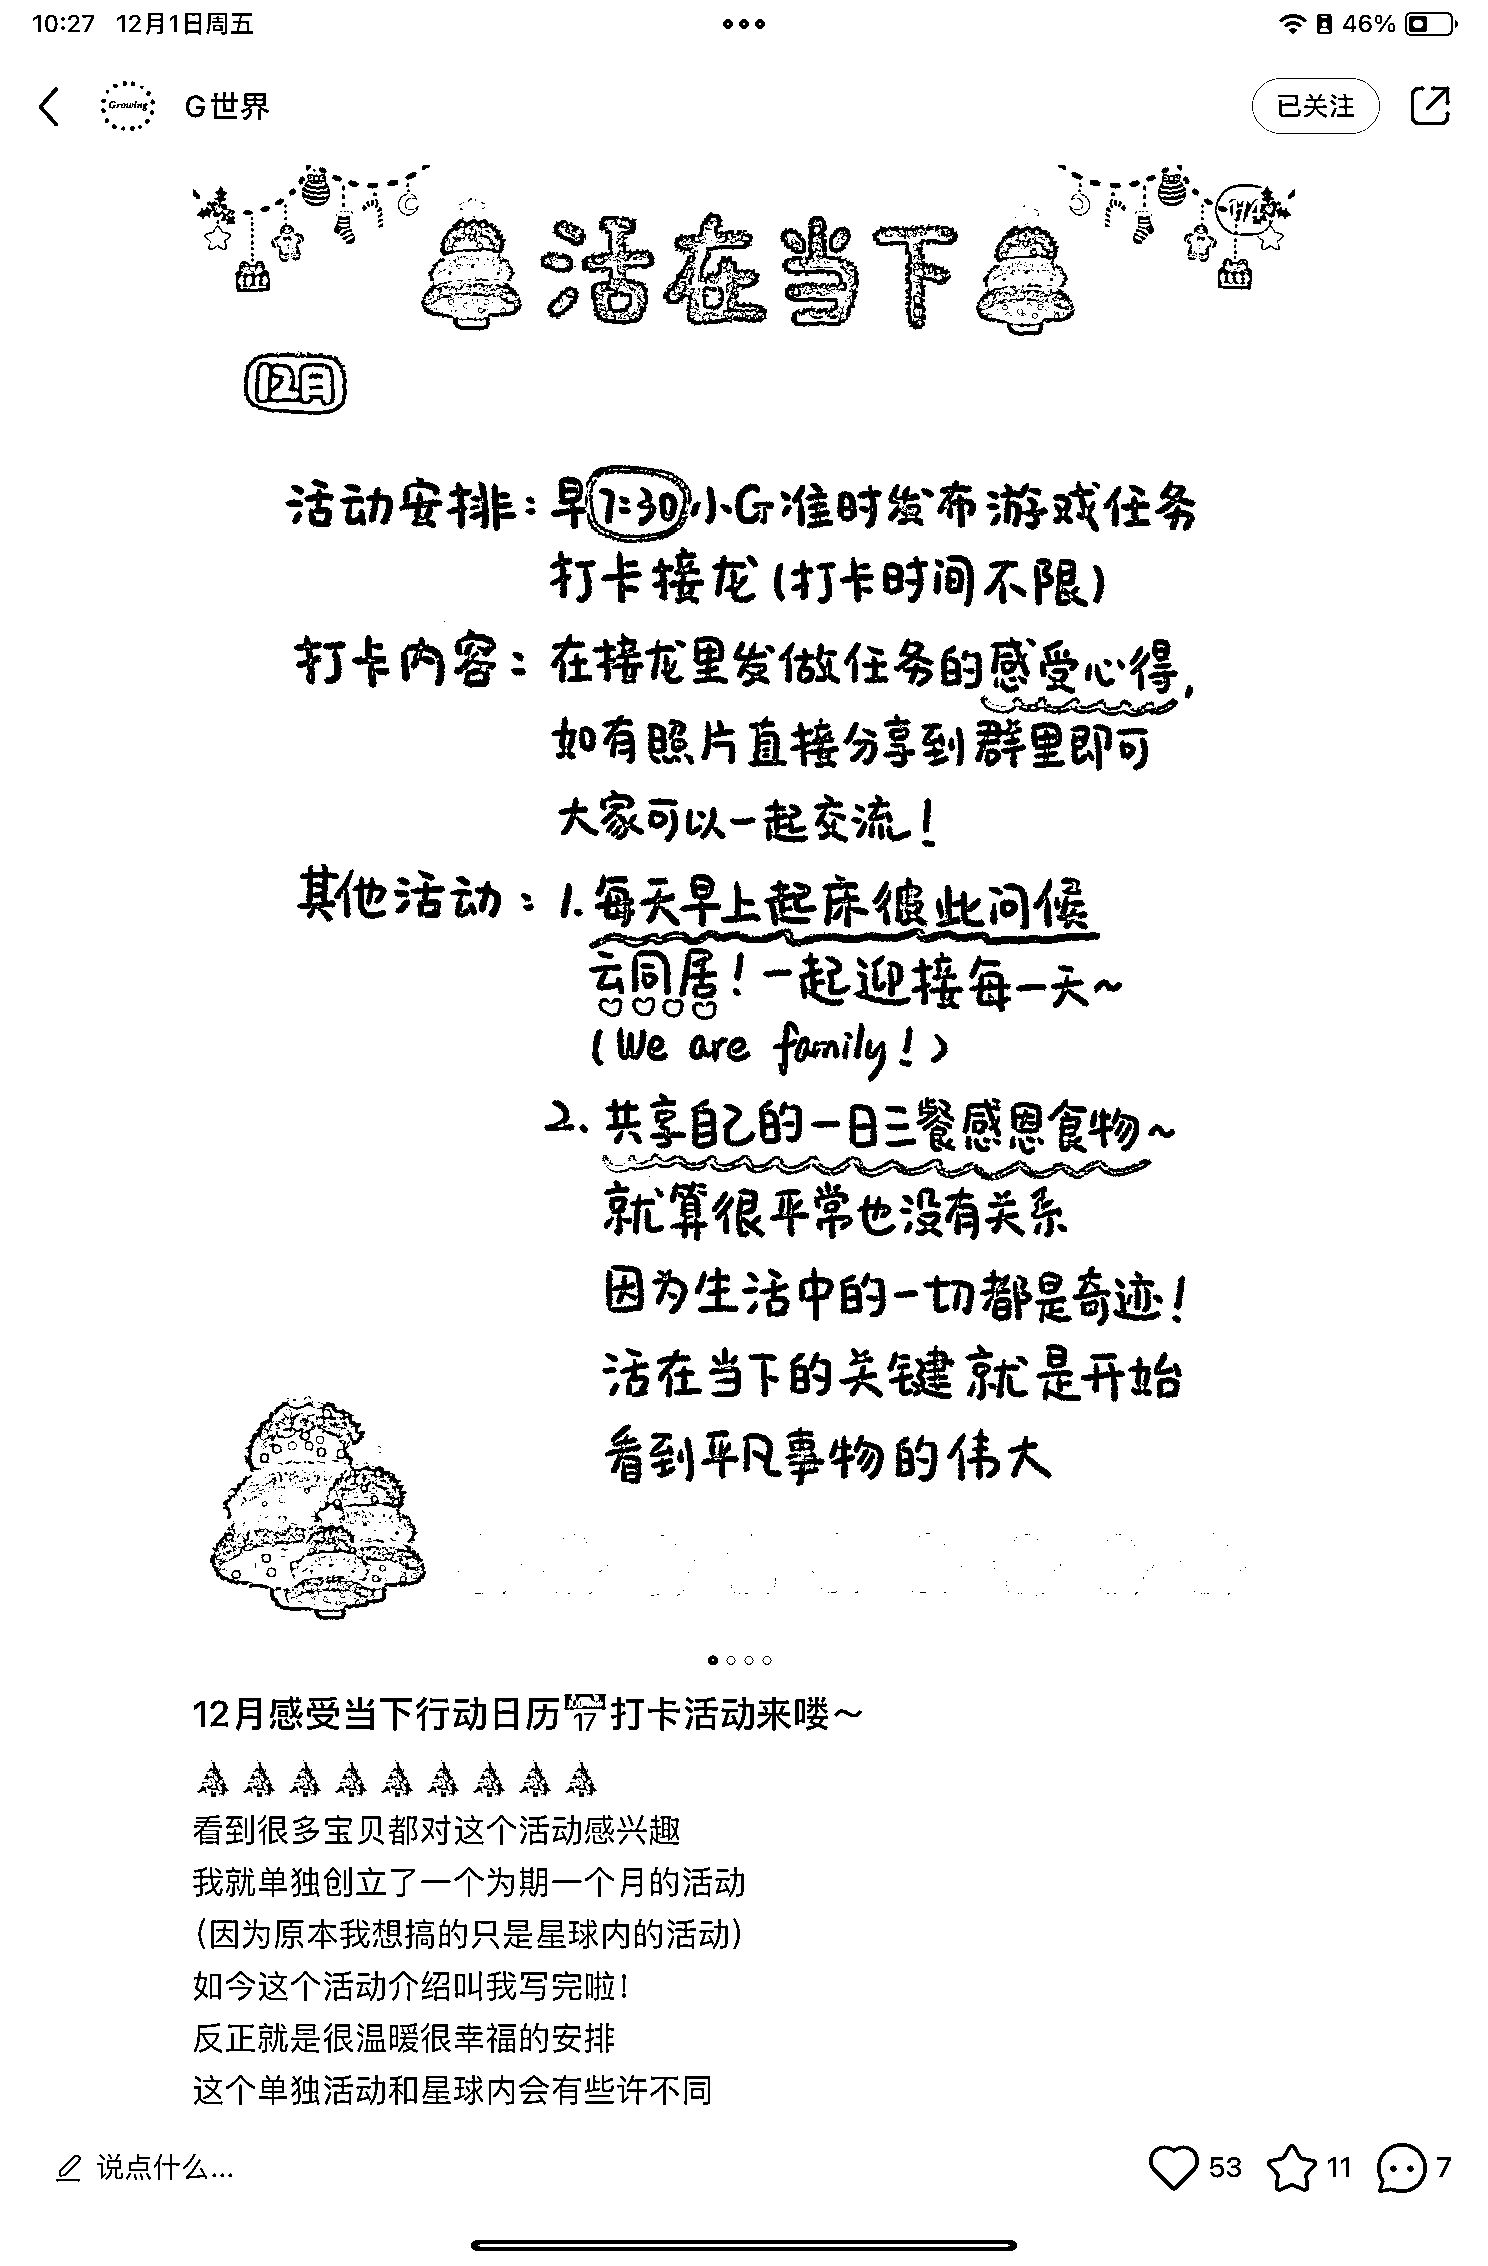 10:27 12月1日周五
46%
Growing
G世界
已关注
1/4
活在当下
12月
活动安排：早7:30小G准时发布游戏任务
打卡接龙(打卡时间不限)
打卡内容：在接龙里发做任务的感受心得，
如有照片直接分享到群里即可
大家可以一起交流！
其他活动：1.每天早上起床彼此问候
云同居！一起迎接每一天~
(We are family！)
2.共享自己的一日三餐感恩食物~
就算很平常也没有关系
因为生活中的一切都是奇迹！
活在当下的关键就是开始
看到平凡事物的伟大
12月感受当下行动日历17打卡活动来喽～
看到很多宝贝都对这个活动感兴趣
我就单独创立了一个为期一个月的活动
（因为原本我想搞的只是星球内的活动）
如今这个活动介绍叫我写完啦！
反正就是很温暖很幸福的安排
这个单独活动和星球内会有些许不同
说点什么...
53
11
7